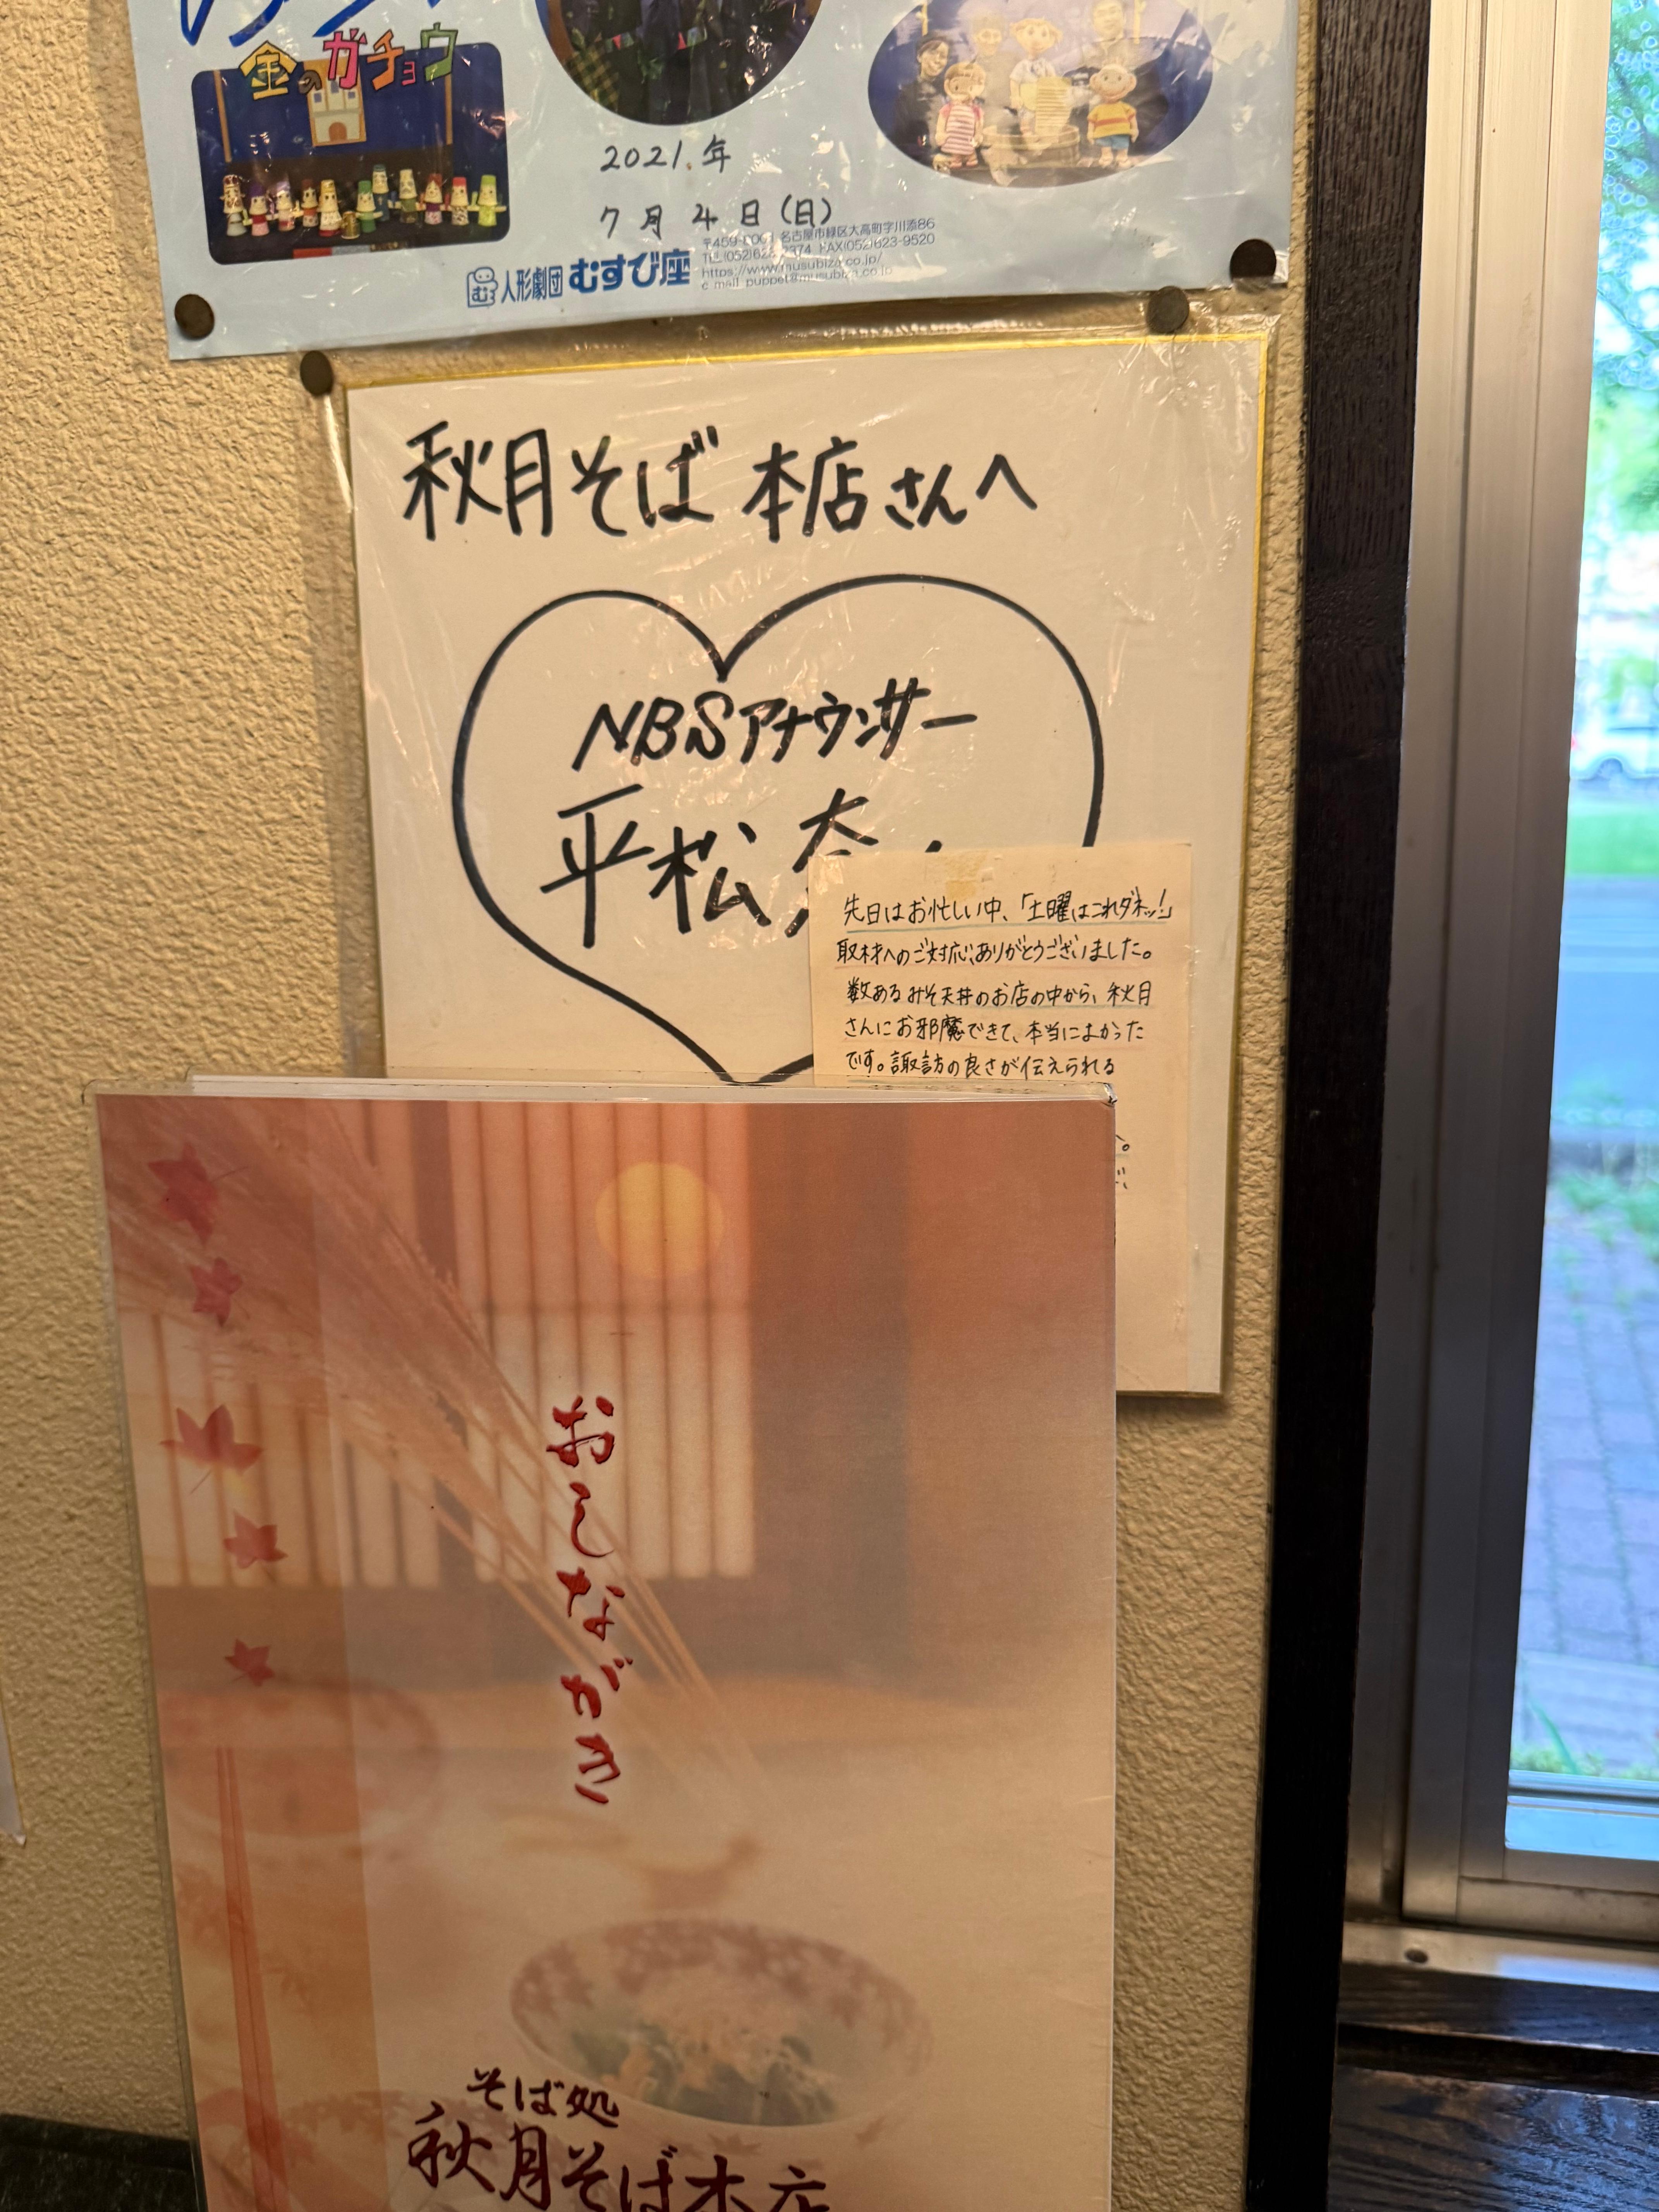 金のガチョウ
2021.年
7月4日(日)
人形劇団 むすび座
名古屋市緑区大高町字川添86
FAX(052)623-9520
https://www.musubiza.co.jp/
秋月そば 本店さんへ
NBSアナウンサー
平松奈
先日はお忙しい中、「土曜はこれダネッ!」
取材へのご対応、ありがとうございました。
数あるみそ天丼のお店の中から、秋月
さんにお邪魔できて、本当によかった
です。諏訪の良さが伝えられる
おしながき
そば処
秋月そば本店